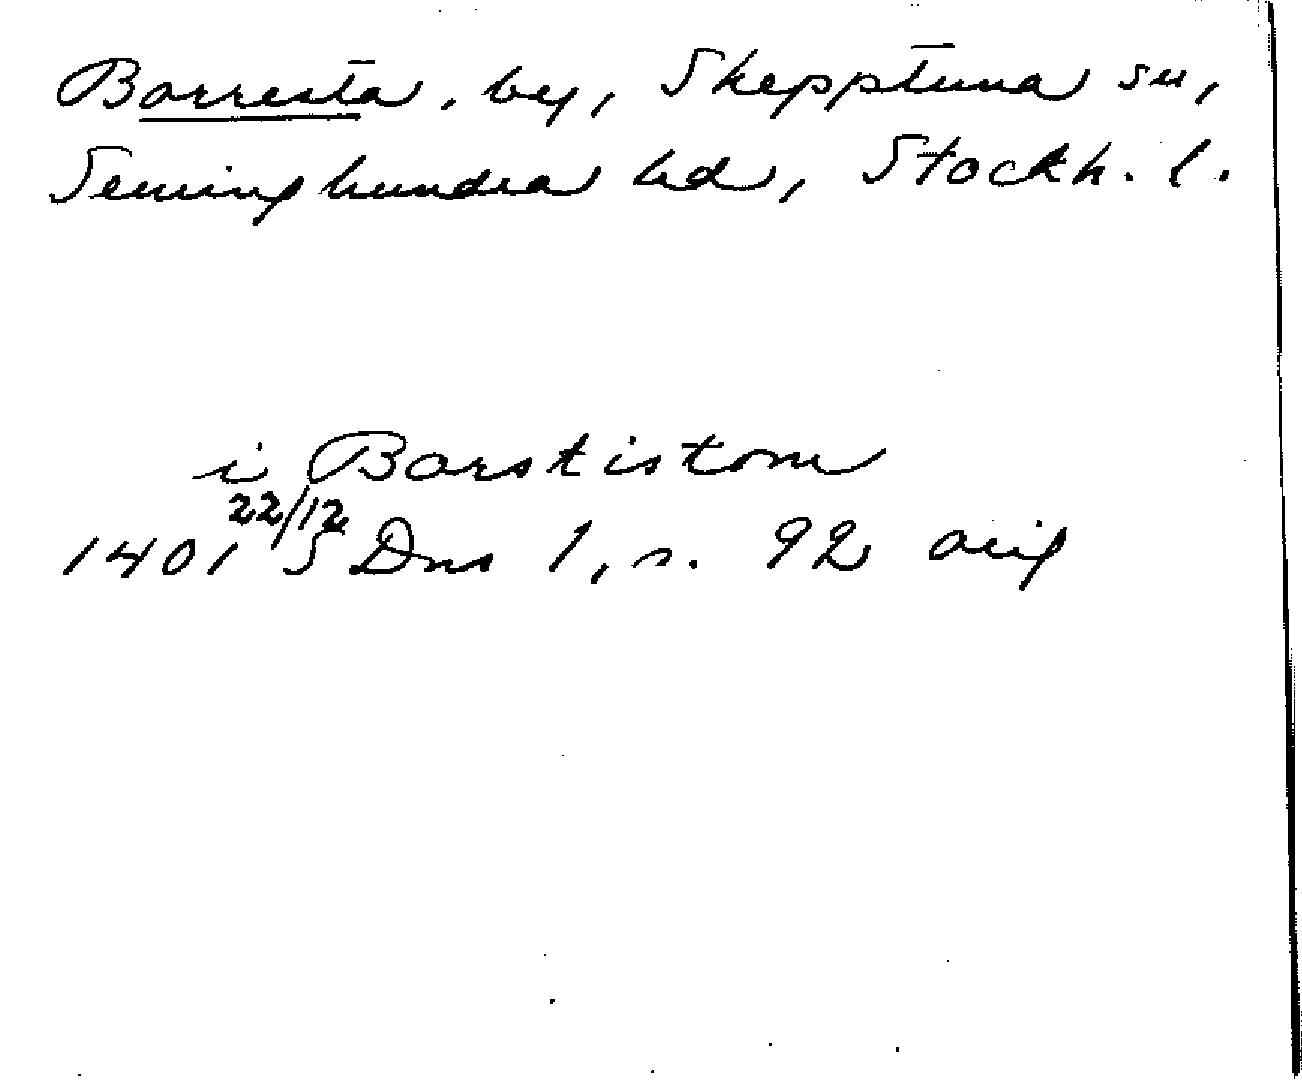 Borresta, by, Skepptuna sn,
Seminghundra hd, Stockh. l.
i Borstistom
1401 22/12 SDns 1, s. 92 orig